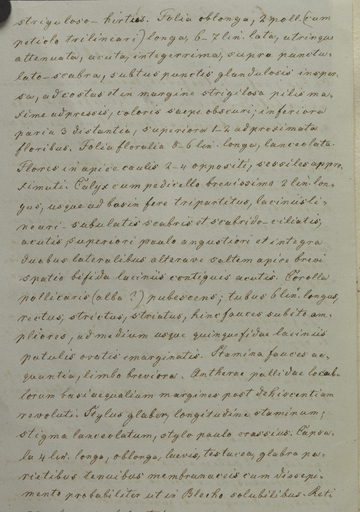 striguloso-hirtus. Folia oblonga, 2 poll. (cum
petiolo trilineari) longa, 6-7 lin. lata, utrinque
attenuata, acuta, integerrima, supra punctu-
lato-scabra, subtus punctis glandulosis insper-
sa, ad costas et in margine strigilosa pilis ma-
xime adpressis, coloris saepe obscuri; inferiora
paria 3 distantia, superiora 1-2 adproximata
floribus. Folia floralia 8-6 lin. longa, lanceolata.
Flores in apice caulis 2-4 oppositi, sessiles appro-
ximati. Calyx cum pedicello brevissimo 2 lin. lon-
gus, usque ad basin fere tripartitus, laciniis li-
neari-subulatis scabris et scabrido-ciliatis,
acutis, superiori paulo angustiori et integra
duabus lateralibus altera ve saltem apice brevi
spatio bifida laciniis contiguis acutis. Corolla
pollicaris (alba?) pubescens; tubus 6 lin. longus,
rectus, strictus, striatus, hinc fauces subito am-
pliores, ad medium usque quinquefidae laciniis
patulis ovatis emarginatis. Stamina fauces ae-
quantia, limbo breviora. Antherae pallidae locu-
lorum basi aequalium margines post dehiscentiam
revoluti. Stylus glaber, longitudine staminum;
stigma lanceolatum, stylo paulo crassius. Capsu-
la 4 lin. longa, oblonga, laevis, testacea, glabra pa-
rietibus tenuibus membranaceis cum dissepi-
mento probabiliter ut in Blecho solubilibus. Reti